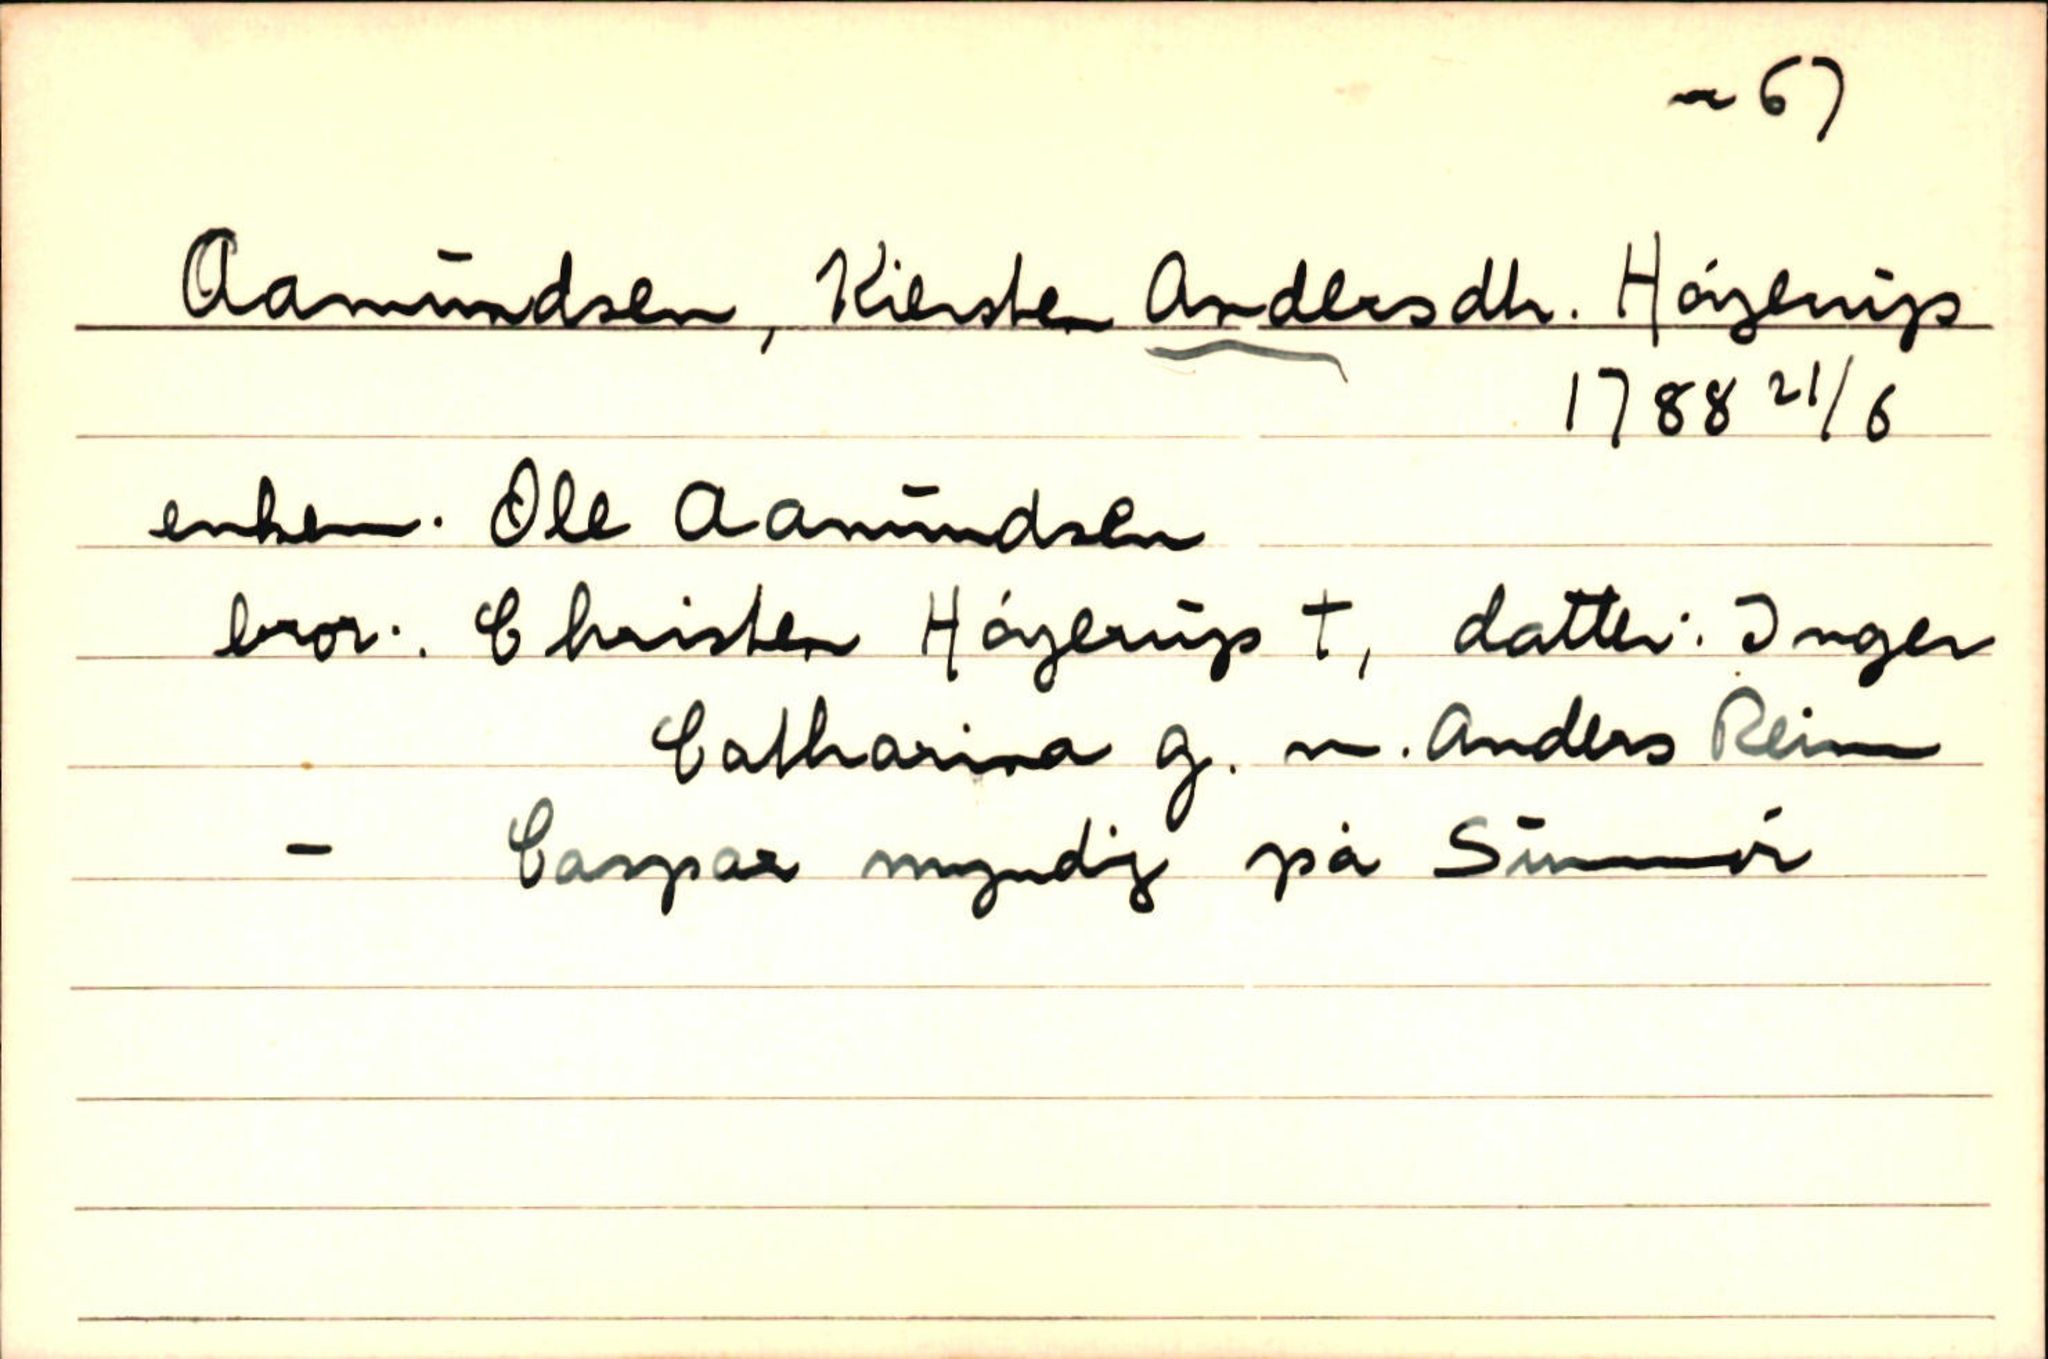 67
Aamundsen, Kiersten Andersdtr. Høyerup
1788 21/6
enkem. Ole Aamundsen
bror: Christen Høyerup †, datter: Inger
Catharina g. m. Anders Reim
- Caspar myndig på Sunmør